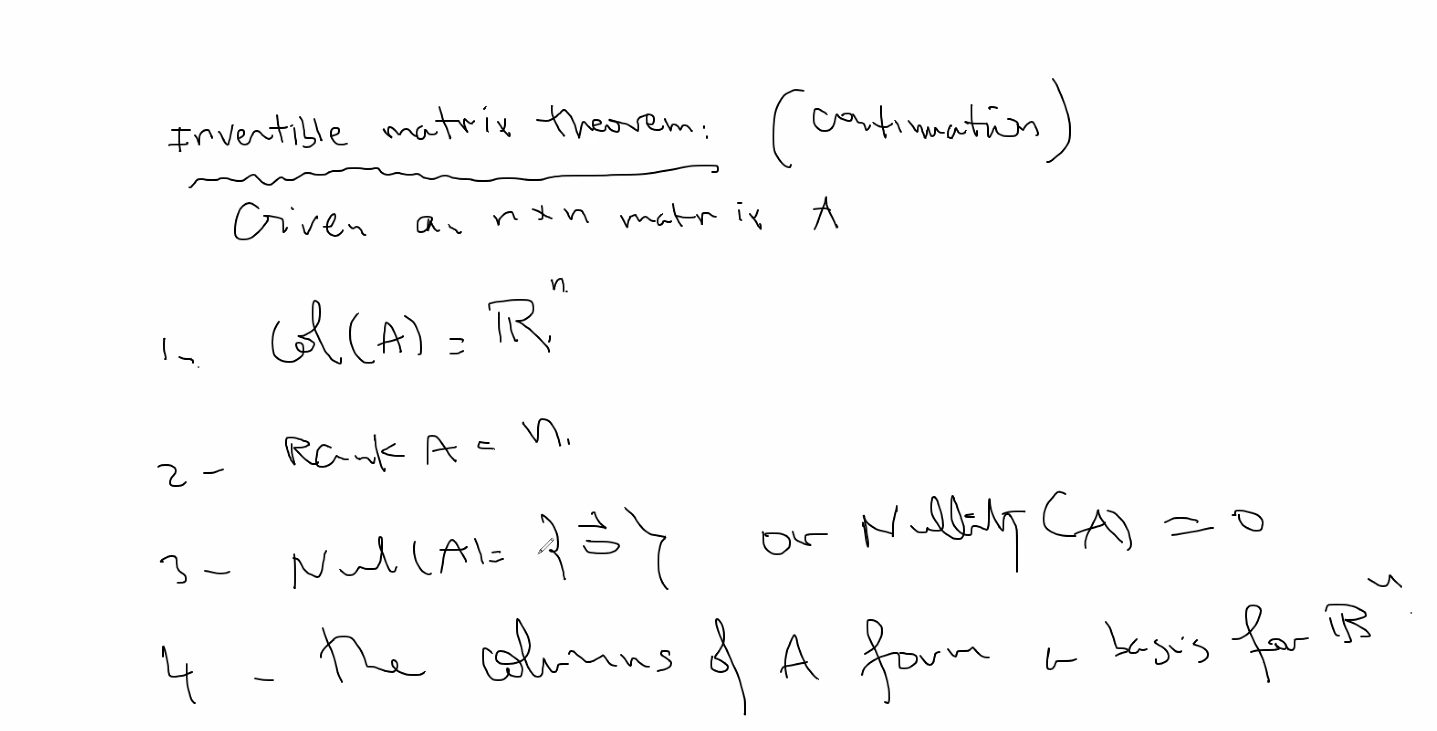 Invertible matrix theorem: (continuation)
Given an n×n matrix A
1- Col(A) = ℝⁿ.
2- Rank A = n.
3- Nul(A) = {0⃗} or Nullity(A) = 0
4- The columns of A form a basis for ℝⁿ.